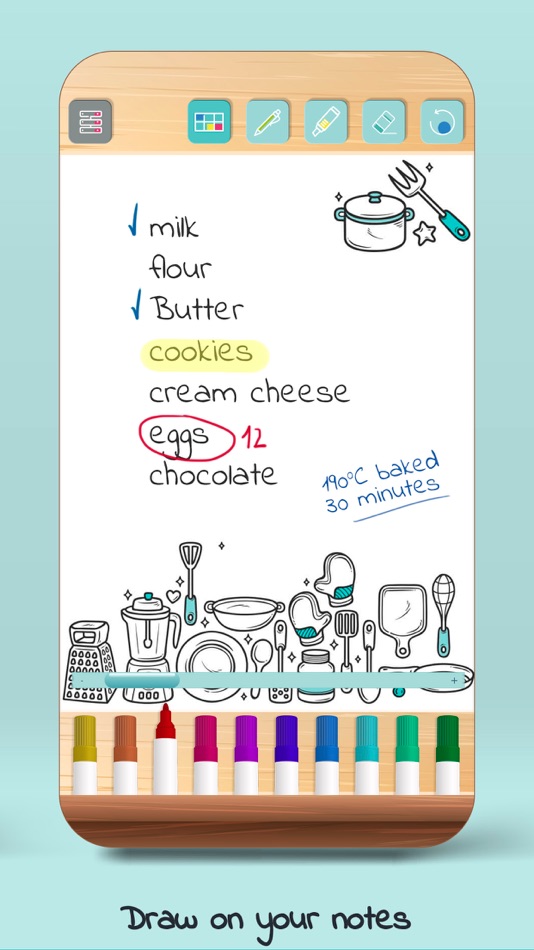 milk
flour
Butter
cookies
cream cheese
eggs 12
chocolate
190°C baked
30 minutes
- +
Draw on your notes